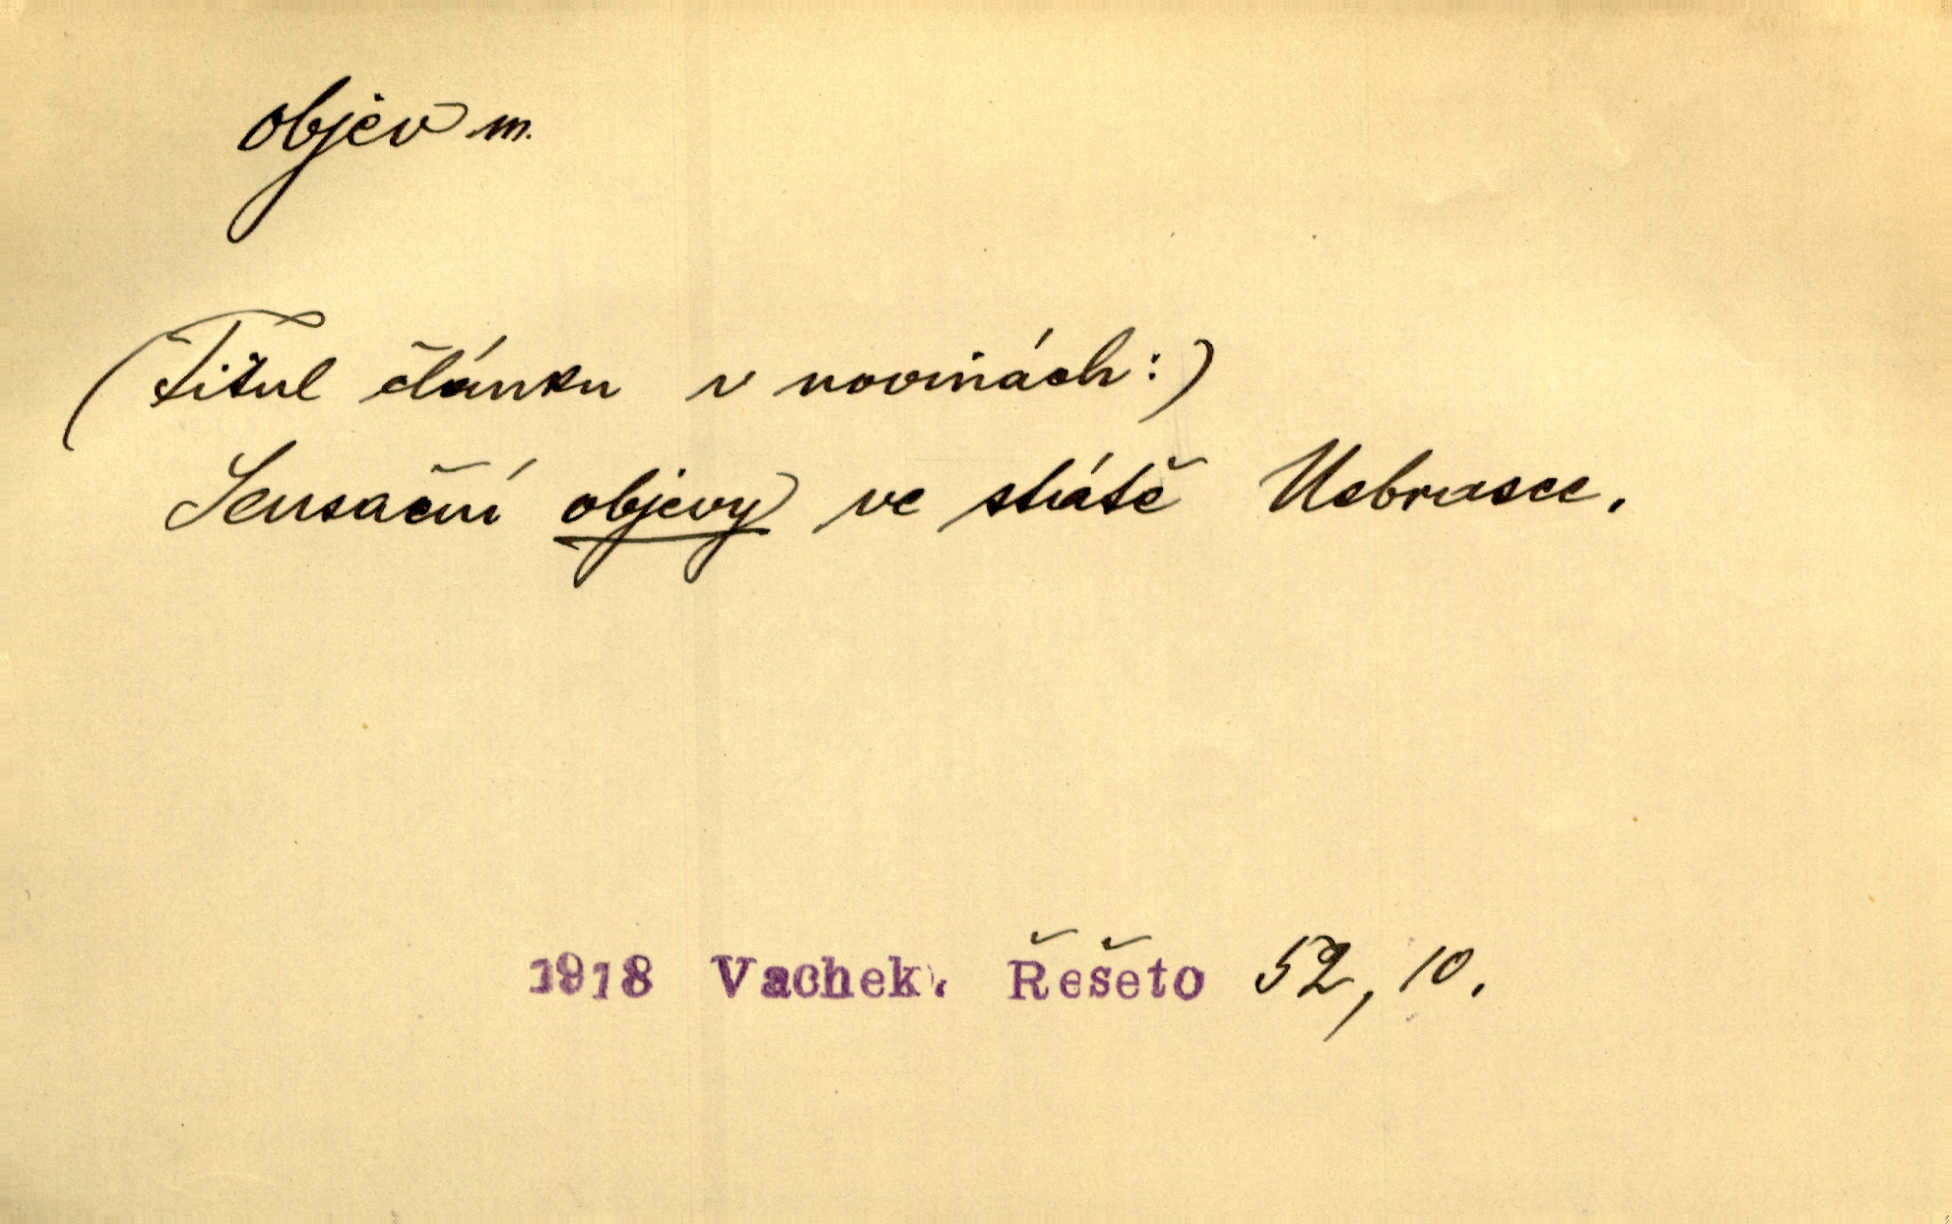 objev m.
(Titul článku v novinách:)
Sensační objevy ve státě Nebrasce.
1918 Vachek. Řešeto 52, 10.